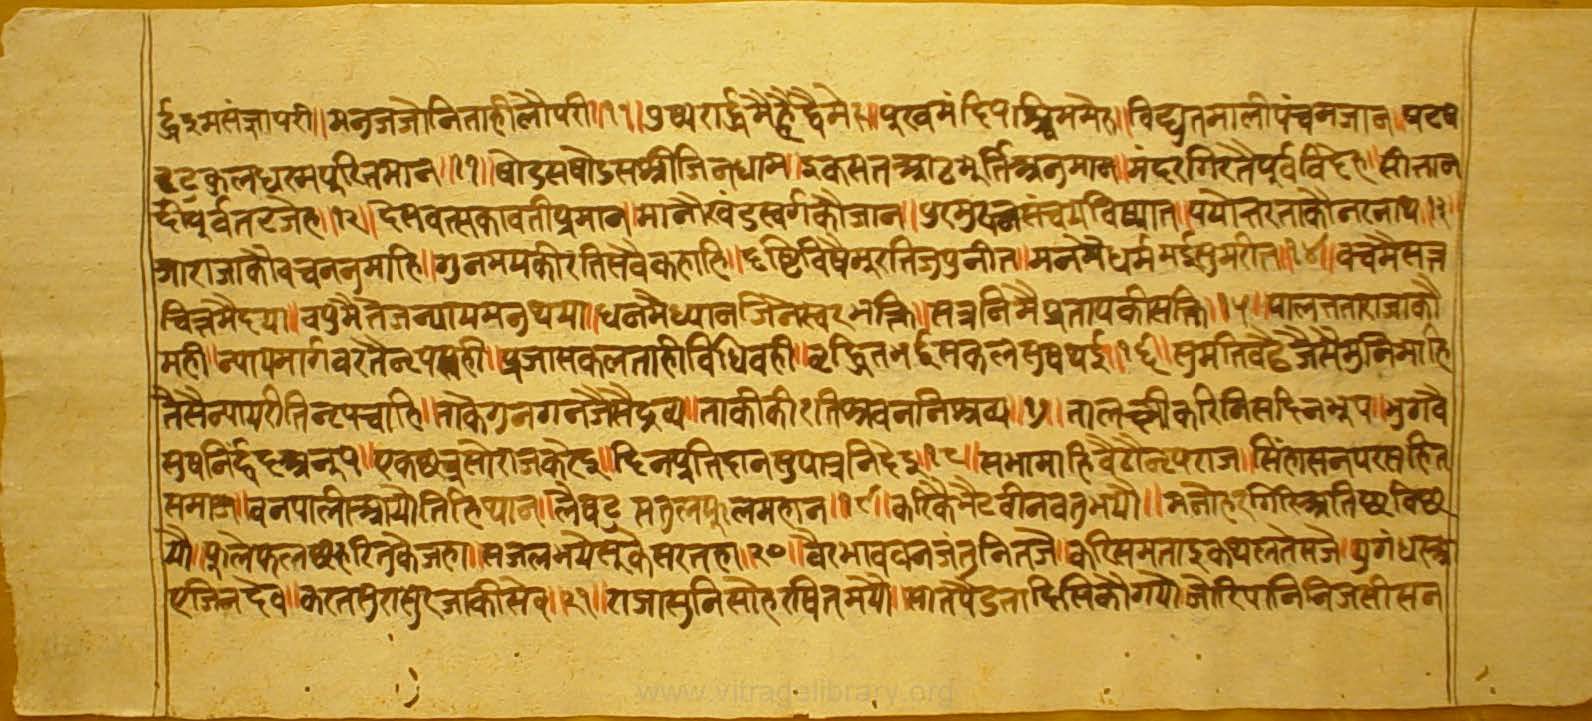 र्द्धइमसंज्ञापरी॥मनुजजोनिताहीलौपरी॥११॥पुष्परार्द्धमैहैद्वैमेर॥पुरवमंदिपश्चिममेर॥विद्युतमालीपंचमजान॥षटष
टकुलधरमपुरितमान॥११॥षोडसषोडसश्रीजिनधाम॥इकसतआठमुर्तिअनमान॥मंदरगिरतैपुर्वविदेह॥सीतान
दीपूर्वतटजेह॥१२॥देसवत्सकावतीप्रमान॥मानौखंडस्वर्गकौजान॥पुरमुरत्नसंचयविष्यात॥पयोत्तरताकौनरनाथ॥१३॥
जाराजाकौवचननुमाहि॥गुनमयकीरतिसवैकहाहि॥दृष्टिविषैमुरतिजुपुनीत॥मनमैधर्ममईसुभरीत॥१४॥वक्वमैसत्त
चित्तमैदया॥वपुमैतेजन्यायमनुथया॥धनमैध्यानजिनेस्वरभक्ति॥सत्रनिमैप्रतापकीसक्ति॥१५॥पालतताराजाकौ
मही॥न्यायमार्गवरतैनृपसही॥प्रजासकलताहीविधिवही॥वृद्धितभईसकलसुषथई॥१६॥सुमतिवैठजैसैमुनिमांहि
तैसैन्यायरीतिनृपचाहि॥ताकैगुनगनजैसैद्रव्य॥ताकीकीरतिअवननिअव्य॥१७॥तालक्ष्मीकरिनिसदिनभूप॥भुगवै
सुषनिर्द्वंदअनूप॥एकछत्रसोराजकरेइ॥दिनप्रतिदानसुपात्रनिदेइ॥१८॥सभामाहिवैठौनृपराज॥सिंहासनपरसहित
समाज॥वनपालीआयौतिहिथान॥लैषटरितुलफुलमहान॥१९॥करिकैभैटवीनवतुभयौ॥मनोहरगिरिअतिछविछ
यौ॥फुलेफलछहरितुकेजहा॥सजलभयेसुकेसरतहा॥२०॥वैरभाववनजंतुनितजै॥करिसमताइकथलतेसजै॥युगंधरआ
एजिनदेव॥करतसुरासुरजाकीसेव॥२१॥राजासुनिसोहरषितभयौ॥सातपैडतादिसिकौगयौ॥जोरिपानिनिजसीसन